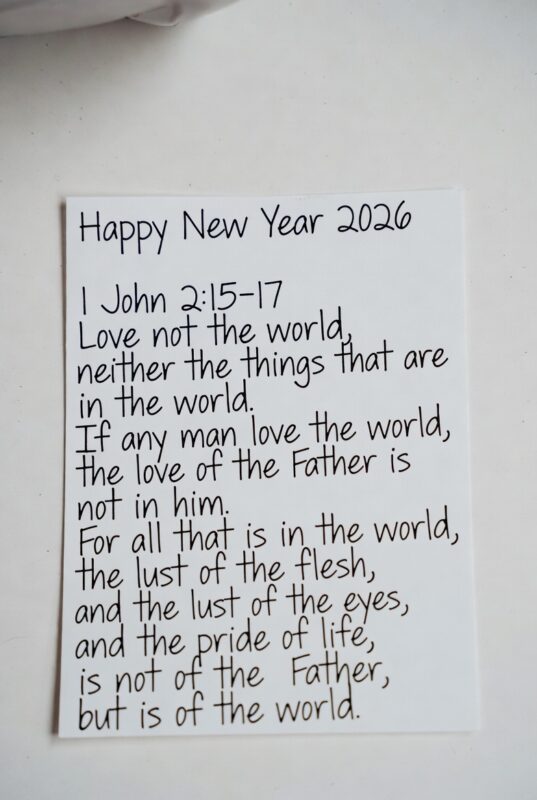 Happy New Year 2026
1 John 2:15-17
Love not the world,
neither the things that are
in the world.
If any man love the world,
the love of the Father is
not in him.
For all that is in the world,
the lust of the flesh,
and the lust of the eyes,
and the pride of life,
is not of the Father,
but is of the world.